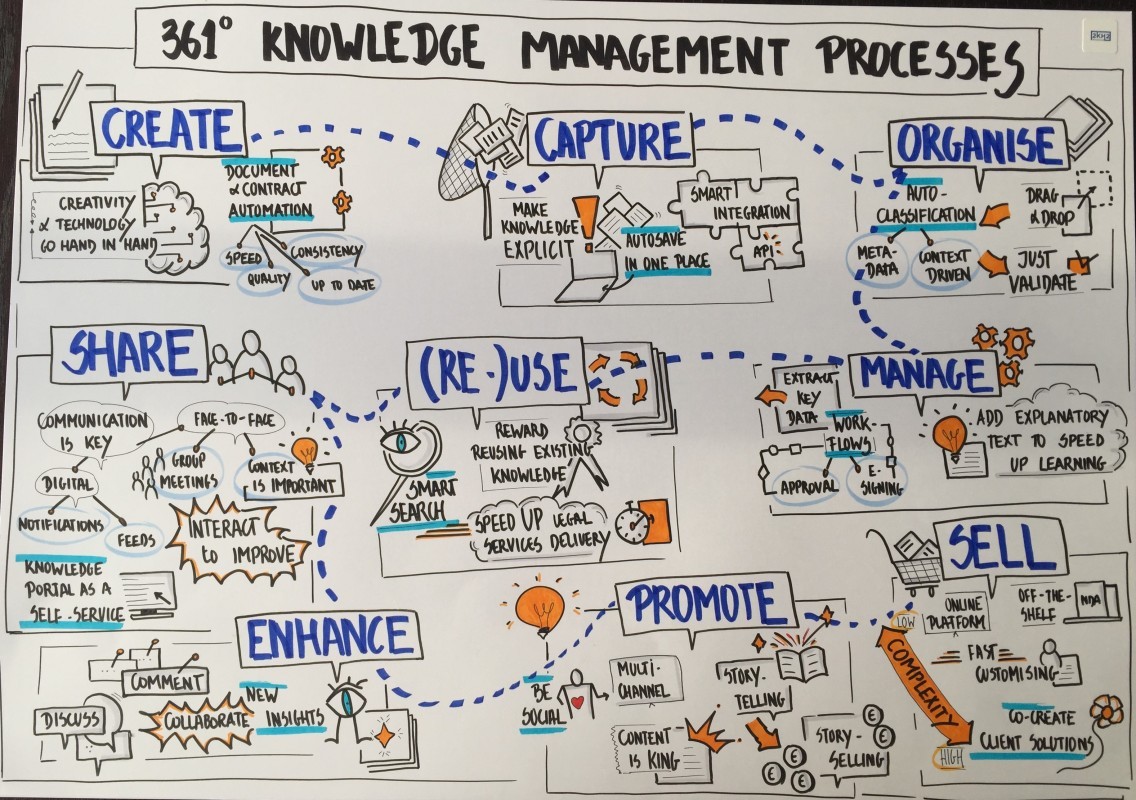 361° KNOWLEDGE MANAGEMENT PROCESSES
2KH2
CREATE
CREATIVITY
& TECHNOLOGY
GO HAND IN HAND
DOCUMENT
& CONTRACT
AUTOMATION
SPEED
CONSISTENCY
QUALITY
UP TO DATE
CAPTURE
MAKE
KNOWLEDGE
EXPLICIT
!
AUTOSAVE
IN ONE PLACE
SMART
INTEGRATION
API
ORGANISE
AUTO-
CLASSIFICATION
META-
DATA
CONTEXT
DRIVEN
DRAG
& DROP
JUST
VALIDATE
MANAGE
EXTRACT
KEY
DATA
WORK-
FLOWS
APPROVAL
E-
SIGNING
ADD EXPLANATORY
TEXT TO SPEED
UP LEARNING
(RE-)USE
SMART
SEARCH
REWARD
REUSING EXISTING
KNOWLEDGE
SPEED UP LEGAL
SERVICES DELIVERY
SHARE
COMMUNICATION
IS KEY
DIGITAL
NOTIFICATIONS
FEEDS
FACE-TO-FACE
GROUP
MEETINGS
CONTEXT
IS IMPORTANT
INTERACT
to IMPROVE
KNOWLEDGE
PORTAL AS A
SELF-SERVICE
ENHANCE
COMMENT
DISCUSS
COLLABORATE
NEW
INSIGHTS
PROMOTE
BE
SOCIAL
MULTI-
CHANNEL
CONTENT
IS KING
STORY-
TELLING
STORY-
SELLING
€
€
€
€
€
SELL
LOW
COMPLEXITY
HIGH
ONLINE
PLATFORM
OFF-THE-
SHELF
NDA
FAST
CUSTOMISING
CO-CREATE
CLIENT SOLUTIONS